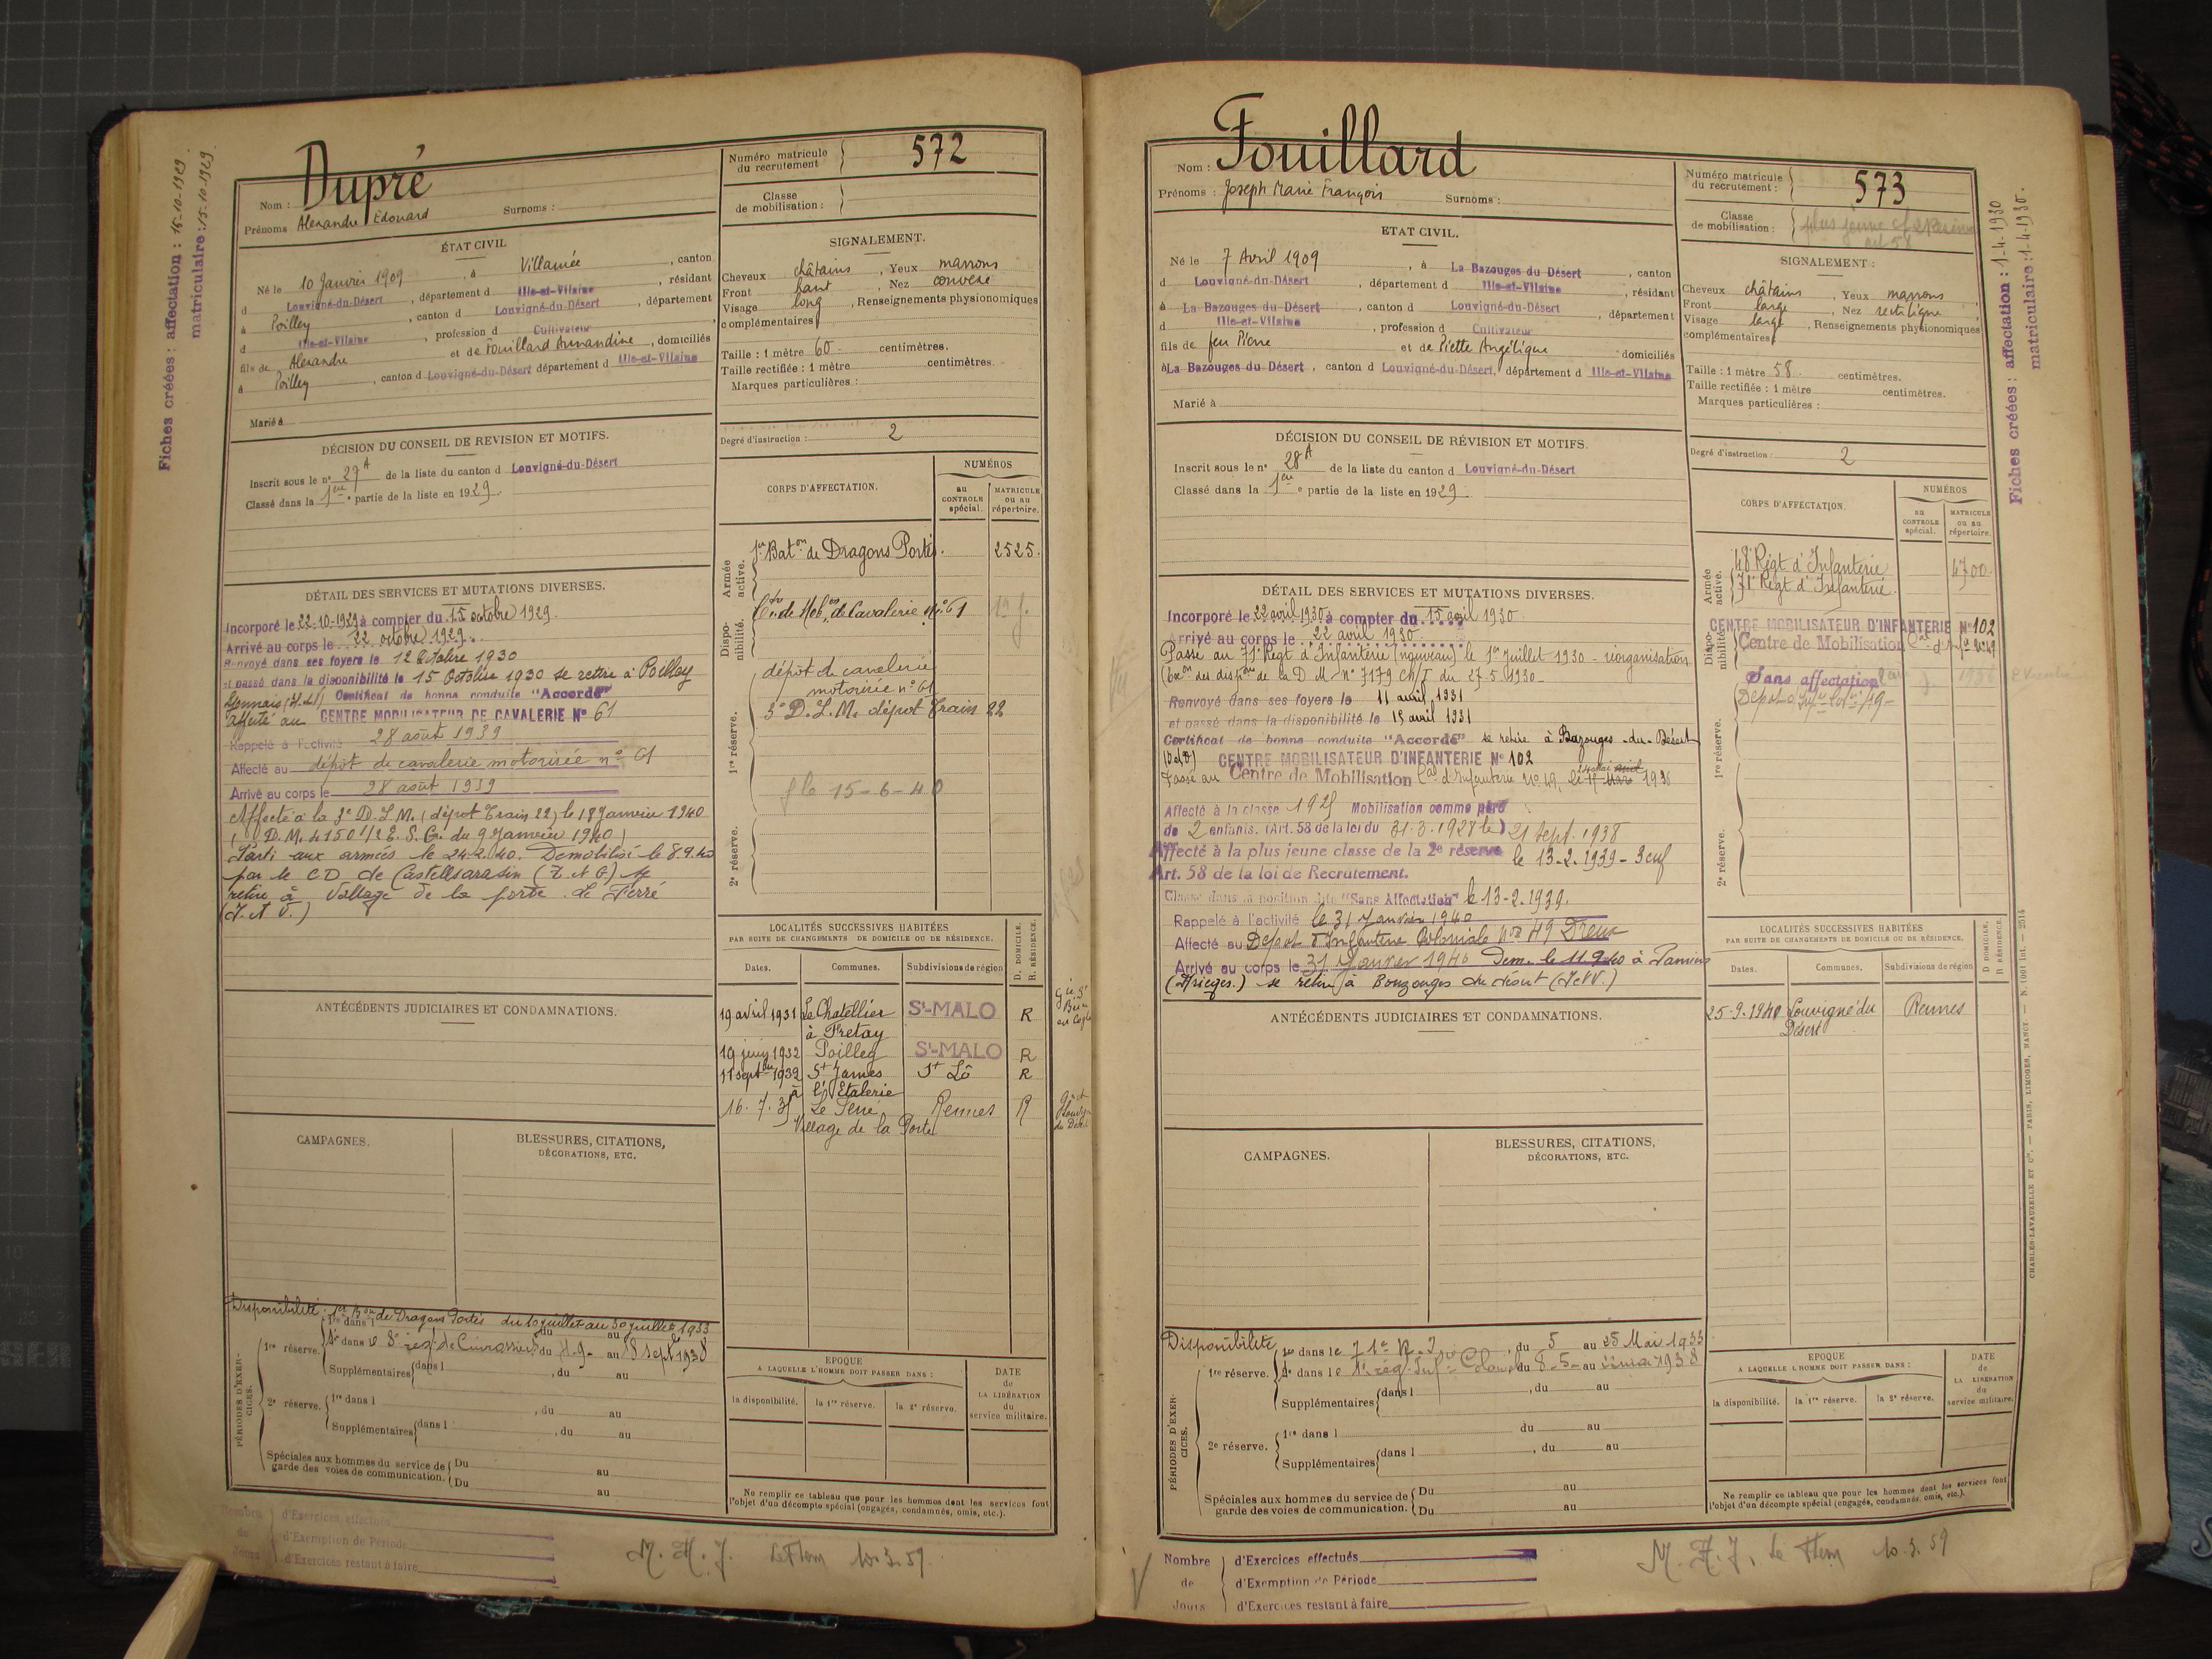 Fiches créées : affectation : 15-10-1929.
matriculaire : 15-10-1929.
Nom : Dupré
Prénoms Alexandre Edouard Surnoms :
Numéro matricule du recrutement 572
Classe de mobilisation :
ÉTAT CIVIL
Né le 10 Janvier 1909, à Villamée, canton
d Louvigné-du-Désert, département d Ille-et-Vilaine, résidant
à Poilley, canton d Louvigné-du-Désert, département
d Ille-et-Vilaine, profession d Cultivateur
fils de Alexandre et de Fouillard Armandine, domiciliés
à Poilley, canton d Louvigné-du-Désert département d Ille-et-Vilaine
Marié à
SIGNALEMENT.
Cheveux châtains, Yeux marrons
Front haut, Nez convexe
Visage long, Renseignements physionomiques
complémentaires
Taille : 1 mètre 60 centimètres.
Taille rectifiée : 1 mètre centimètres.
Marques particulières :
Degré d'instruction : 2
DÉCISION DU CONSEIL DE REVISION ET MOTIFS.
Inscrit sous le n° 27 A de la liste du canton d Louvigné-du-Désert
Classé dans la 1ère partie de la liste en 1929.
CORPS D'AFFECTATION.
NUMÉROS
au CONTROLE spécial.
MATRICULE ou au répertoire.
Armée active.
1er Baton de Dragons Portés. 2525.
Disponibilité.
Ctre de Mobon de Cavalerie n° 61
1re réserve.
dépôt de cavalerie
motorisée n° 61
3e D.L.M. dépôt Train 22
15-6-40
2e réserve.
DÉTAIL DES SERVICES ET MUTATIONS DIVERSES.
Incorporé le 22-10-1929 à compter du 15 octobre 1929.
Arrivé au corps le 22 octobre 1929.
Renvoyé dans ses foyers le 12 Octobre 1930
et passé dans la disponibilité le 15 Octobre 1930 se retire à Poilley
Certificat de bonne conduite "Accordé"
Affecté au CENTRE MOBILISATEUR DE CAVALERIE N° 61
Rappelé à l'activité 28 août 1939
Affecté au dépôt de cavalerie motorisée n° 61
Arrivé au corps le 28 août 1939
Affecté à la 3e D.L.M. (dépôt Train 22) le 18 Janvier 1940
( D.M. 4150 1/2 E.S.G. du 9 Janvier 1940)
Parti aux armées le 24.2.40. Démobilisé le 8.9.40
par le CD de Castelsarrasin (T. et G) se
retire à Village de la porte le Ferré
(I. et V.)
LOCALITÉS SUCCESSIVES HABITÉES
PAR SUITE DE CHANGEMENTS DE DOMICILE OU DE RÉSIDENCE.
Dates. Communes. Subdivisions de région D. DOMICILE. R. RÉSIDENCE.
19 avril 1931 Le Chatellier St-MALO R
à Fretay
19 juin 1932 Poilley St-MALO R
11 septbre 1932 St James St Lô R
à l'Etalerie
16. 7. 35 Le Ferré Rennes R
Village de la Porte
ANTÉCÉDENTS JUDICIAIRES ET CONDAMNATIONS.
CAMPAGNES.
BLESSURES, CITATIONS,
DÉCORATIONS, ETC.
PÉRIODES D'EXERCICES.
Disponibilité : 1er Bon de Dragons Portés du 10 juillet au 30 juillet 1933
1re réserve. 1re dans l du au
2e dans le 8e rég. de Cuirassiers du 1-9- au 18 sept 1938
Supplémentaires dans l , du au
2e réserve. 1re dans l , du au
Supplémentaires dans l , du au
Spéciales aux hommes du service de garde des voies de communication. Du au
Du au
EPOQUE
A LAQUELLE L'HOMME DOIT PASSER DANS :
la disponibilité. la 1re réserve. la 2e réserve.
DATE de LA LIBÉRATION du service militaire.
Ne remplir ce tableau que pour les hommes dont les services font
l'objet d'un décompte spécial (engagés, condamnés, omis, etc.).
Nombre de Jours
d'Exercices effectués
d'Exemption de Période
d'Exercices restant à faire
Le Flem 10.3.59
Nom : Fouillard
Prénoms : Joseph Marie François Surnoms :
Numéro matricule du recrutement : 573
Classe de mobilisation : plus jeune cl. 2e Réserve
art 58
ETAT CIVIL.
Né le 7 Avril 1909, à La Bazouges du Désert, canton
d Louvigné-du-Désert, département d Ille-et-Vilaine, résidant
à La Bazouges-du-Désert, canton d Louvigné-du-Désert, département
d Ille-et-Vilaine, profession d Cultivateur
fils de feu Pierre et de Piette Angélique domiciliés
à La Bazouges du Désert, canton d Louvigné-du-Désert, département d Ille-et-Vilaine
Marié à
SIGNALEMENT :
Cheveux châtains, Yeux marrons
Front large, Nez rectiligne
Visage large, Renseignements physionomiques
complémentaires
Taille : 1 mètre 58 centimètres.
Taille rectifiée : 1 mètre centimètres.
Marques particulières :
Degré d'instruction : 2
Fiches créées : affectation : 1-4-1930
matriculaire : 1-4-1930.
DÉCISION DU CONSEIL DE RÉVISION ET MOTIFS.
Inscrit sous le n° 28 A de la liste du canton d Louvigné-du-Désert
Classé dans la 1ère partie de la liste en 1929
CORPS D'AFFECTATION.
NUMÉROS
au CONTROLE spécial.
MATRICULE ou au répertoire.
Armée active.
48e Régt d'Infanterie 4700.
71e Régt d'Infanterie.
Disponibilité.
CENTRE MOBILISATEUR D'INFANTERIE N° 102
Centre de Mobilisation
Sans affectation
1re réserve.
2e réserve.
DÉTAIL DES SERVICES ET MUTATIONS DIVERSES.
Incorporé le 22 avril 1930 à compter du 15 avril 1930
Arrivé au corps le 22 avril 1930.
Passé au 71e Régt d'Infanterie (nouveau) le 1er Juillet 1930 - réorganisation
(Exon des dispons de la D.M. n° 7179 du 27.5.1930-
Renvoyé dans ses foyers le 11 avril 1931
et passé dans la disponibilité le 15 avril 1931
Certificat de bonne conduite "Accordé" se retire à Bazouges-du-Désert
CENTRE MOBILISATEUR D'INFANTERIE N° 102
Passé au Centre de Mobilisation Cal d'Infanterie n° 49, le 1936
Affecté à la classe 1925 Mobilisation comme père
de 2 enfants. (Art. 58 de la loi du 31.3.1928 le) 21 sept. 1938
Affecté à la plus jeune classe de la 2e réserve le 13-2-1939 - 3 enf
Art. 58 de la loi de Recrutement.
Classé dans la position dite "Sans Affectation" le 13-2-1939.
Rappelé à l'activité le 31 Janvier 1940
Affecté au Dépôt d'Infanterie Coloniale n° 49 Dreux
Arrivé au corps le 31 Janvier 1940 Dem. le 11.9.40 à Pamiers
(Arièges.) se retire à Bouzouges du désert (I et V.)
LOCALITÉS SUCCESSIVES HABITÉES
PAR SUITE DE CHANGEMENTS DE DOMICILE OU DE RÉSIDENCE.
Dates. Communes. Subdivisions de région D DOMICILE. R RÉSIDENCE
25-9-1940 Louvigné du Désert Rennes
ANTÉCÉDENTS JUDICIAIRES ET CONDAMNATIONS.
CAMPAGNES.
BLESSURES, CITATIONS,
DÉCORATIONS, ETC.
PÉRIODES D'EXERCICES.
Disponibilité
1re réserve. 1re dans le 71e R.I., du 5 au 25 Mai 1933
2e dans le 1e rég. Infie Colone du 8-5- au mai 1938
Supplémentaires dans l , du au
2e réserve. 1re dans l du au
Supplémentaires dans l , du au
Spéciales aux hommes du service de garde des voies de communication. Du au
Du au
EPOQUE
A LAQUELLE L'HOMME DOIT PASSER DANS :
la disponibilité. la 1re réserve. la 2e réserve.
DATE de LA LIBÉRATION du service militaire.
Ne remplir ce tableau que pour les hommes dont les services font
l'objet d'un décompte spécial (engagés, condamnés, omis, etc.).
CHARLES-LAVAUZELLE ET Cie. — PARIS, LIMOGES, NANCY.
Nombre de Jours
d'Exercices effectués
d'Exemption de Période
d'Exercices restant à faire
Le Flem 10.3.59